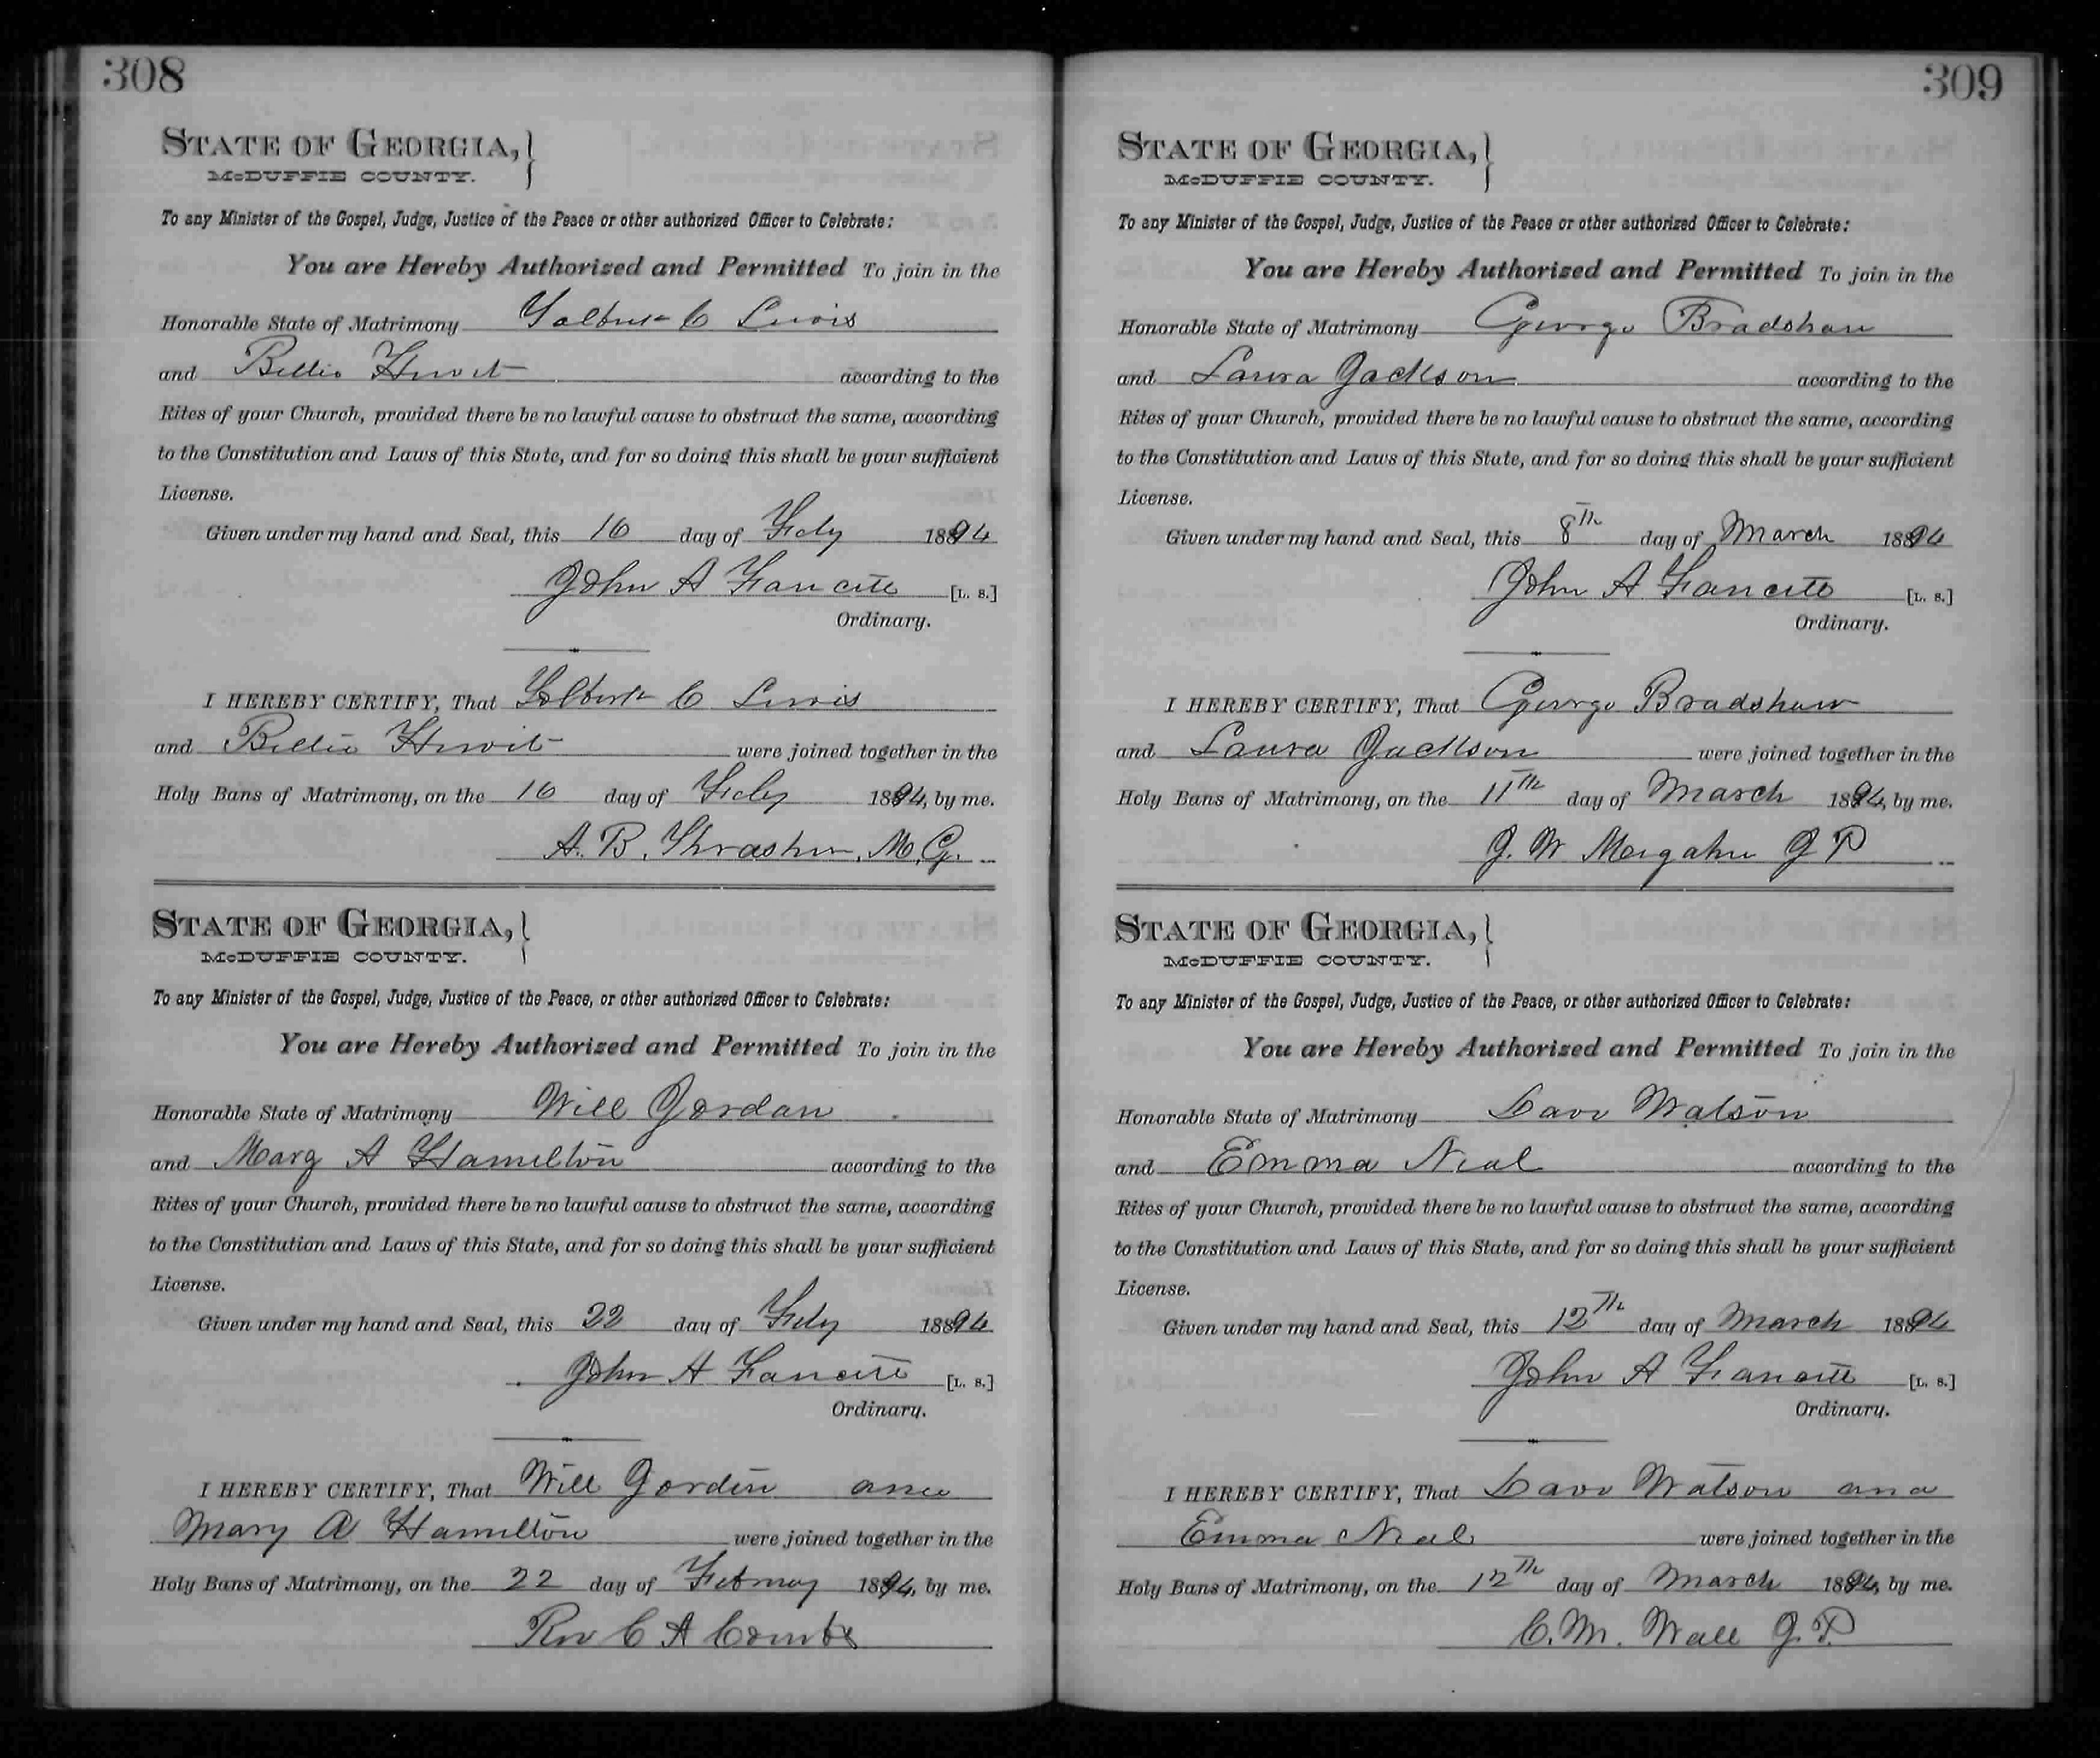 308
STATE OF GEORGIA,
McDUFFIE COUNTY.
To any Minister of the Gospel, Judge, Justice of the Peace or other authorized Officer to Celebrate:
You are Hereby Authorized and Permitted To join in the
Honorable State of Matrimony C Lewis
and Billie Hewit according to the
Rites of your Church, provided there be no lawful cause to obstruct the same, according
to the Constitution and Laws of this State, and for so doing this shall be your sufficient
License.
Given under my hand and Seal, this 16 day of Feby 1894
John A [L. S.]
Ordinary.
I HEREBY CERTIFY, That C Lewis
and Billie Hewit were joined together in the
Holy Bans of Matrimony, on the 16 day of Feby 1894, by me.
A. B. Thrasher, M. G.
STATE OF GEORGIA,
McDUFFIE COUNTY.
To any Minister of the Gospel, Judge, Justice of the Peace, or other authorized Officer to Celebrate:
You are Hereby Authorized and Permitted To join in the
Honorable State of Matrimony Will Jordan
and Mary A Hamilton according to the
Rites of your Church, provided there be no lawful cause to obstruct the same, according
to the Constitution and Laws of this State, and for so doing this shall be your sufficient
License.
Given under my hand and Seal, this 22 day of Feby 1894
John A [L. S.]
Ordinary.
I HEREBY CERTIFY, That Will Gordin and
Mary A Hamilton were joined together in the
Holy Bans of Matrimony, on the 22 day of February 1894, by me.
Rev C A Combs
309
STATE OF GEORGIA,
McDUFFIE COUNTY.
To any Minister of the Gospel, Judge, Justice of the Peace or other authorized Officer to Celebrate:
You are Hereby Authorized and Permitted To join in the
Honorable State of Matrimony George Bradshaw
and Laura Jackson according to the
Rites of your Church, provided there be no lawful cause to obstruct the same, according
to the Constitution and Laws of this State, and for so doing this shall be your sufficient
License.
Given under my hand and Seal, this 8th day of March 1894
John A [L. S.]
Ordinary.
I HEREBY CERTIFY, That George Bradshaw
and Laura Jackson were joined together in the
Holy Bans of Matrimony, on the 11th day of March 1894, by me.
J. W Morgahn J P
STATE OF GEORGIA,
McDUFFIE COUNTY.
To any Minister of the Gospel, Judge, Justice of the Peace, or other authorized Officer to Celebrate:
You are Hereby Authorized and Permitted To join in the
Honorable State of Matrimony Dave Watson
and Emma Neal according to the
Rites of your Church, provided there be no lawful cause to obstruct the same, according
to the Constitution and Laws of this State, and for so doing this shall be your sufficient
License.
Given under my hand and Seal, this 12th day of March 1894
John A [L. S.]
Ordinary.
I HEREBY CERTIFY, That Dave Watson and
Emma Neal were joined together in the
Holy Bans of Matrimony, on the 12th day of March 1894, by me.
C. M. Wall J. P.